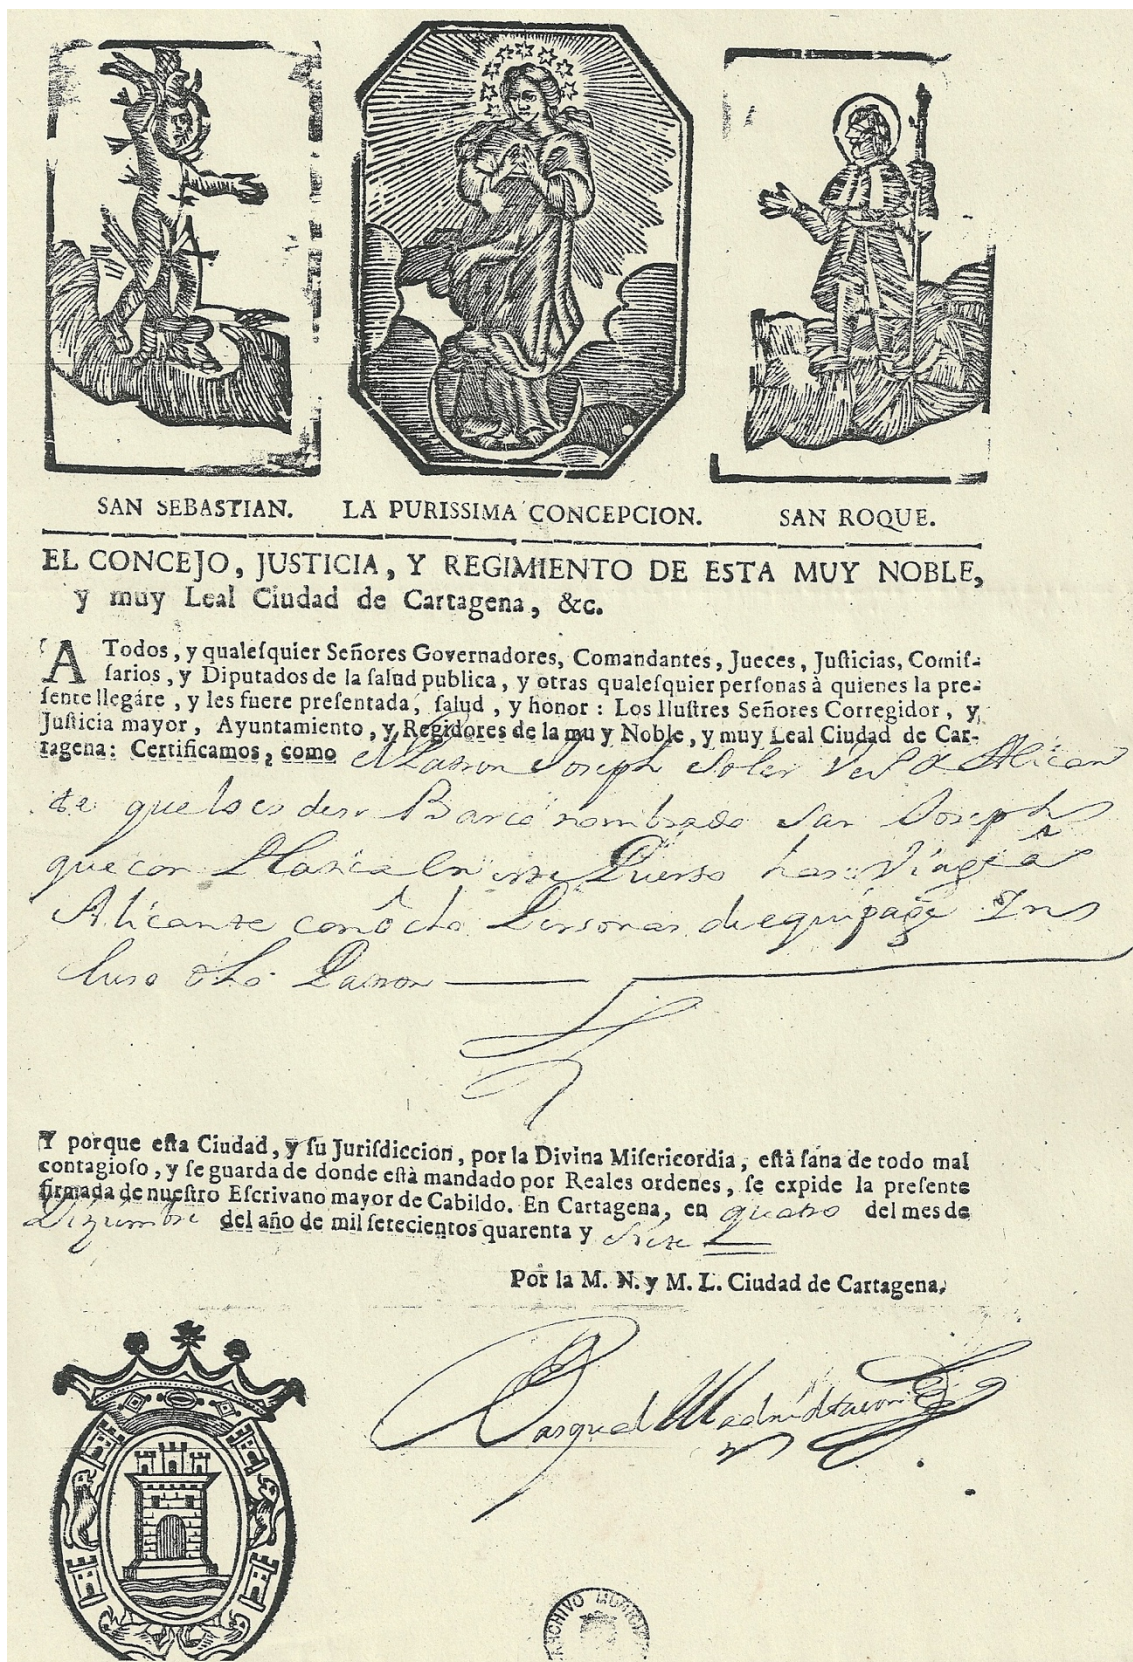 SAN SEBASTIAN. LA PURISSIMA CONCEPCION. SAN ROQUE.
EL CONCEJO, JUSTICIA, Y REGIMIENTO DE ESTA MUY NOBLE,
y muy Leal Ciudad de Cartagena, &c.
A Todos, y qualeſquier Señores Governadores, Comandantes, Jueces, Juſticias, Comiſ-
ſarios, y Diputados de la ſalud publica, y otras qualeſquier perſonas à quienes la pre-
ſente llegáre, y les fuere preſentada, ſalud, y honor: Los Iluſtres Señores Corregidor, y
Juſticia mayor, Ayuntamiento, y Regidores de la muy Noble, y muy Leal Ciudad de Car-
tagena: Certificamos, como Patron Joseph Soler Alican
te que lo es Barco nombrado San Joseph
que con en este Puerto Viage a
Alicante con ôcho Personas de equipage Yn
cluso Patron
Y porque eſta Ciudad, y ſu Juriſdiccion, por la Divina Miſericordia, eſtà ſana de todo mal
contagioſo, y ſe guarda de donde eſtà mandado por Reales ordenes, ſe expide la preſente
firmada de nueſtro Eſcrivano mayor de Cabildo. En Cartagena, en quatro del mes de
Diziembre del año de mil ſetecientos quarenta y siete
Por la M. N. y M. L. Ciudad de Cartagena,
Pasqual Madrid
ARCHIVO